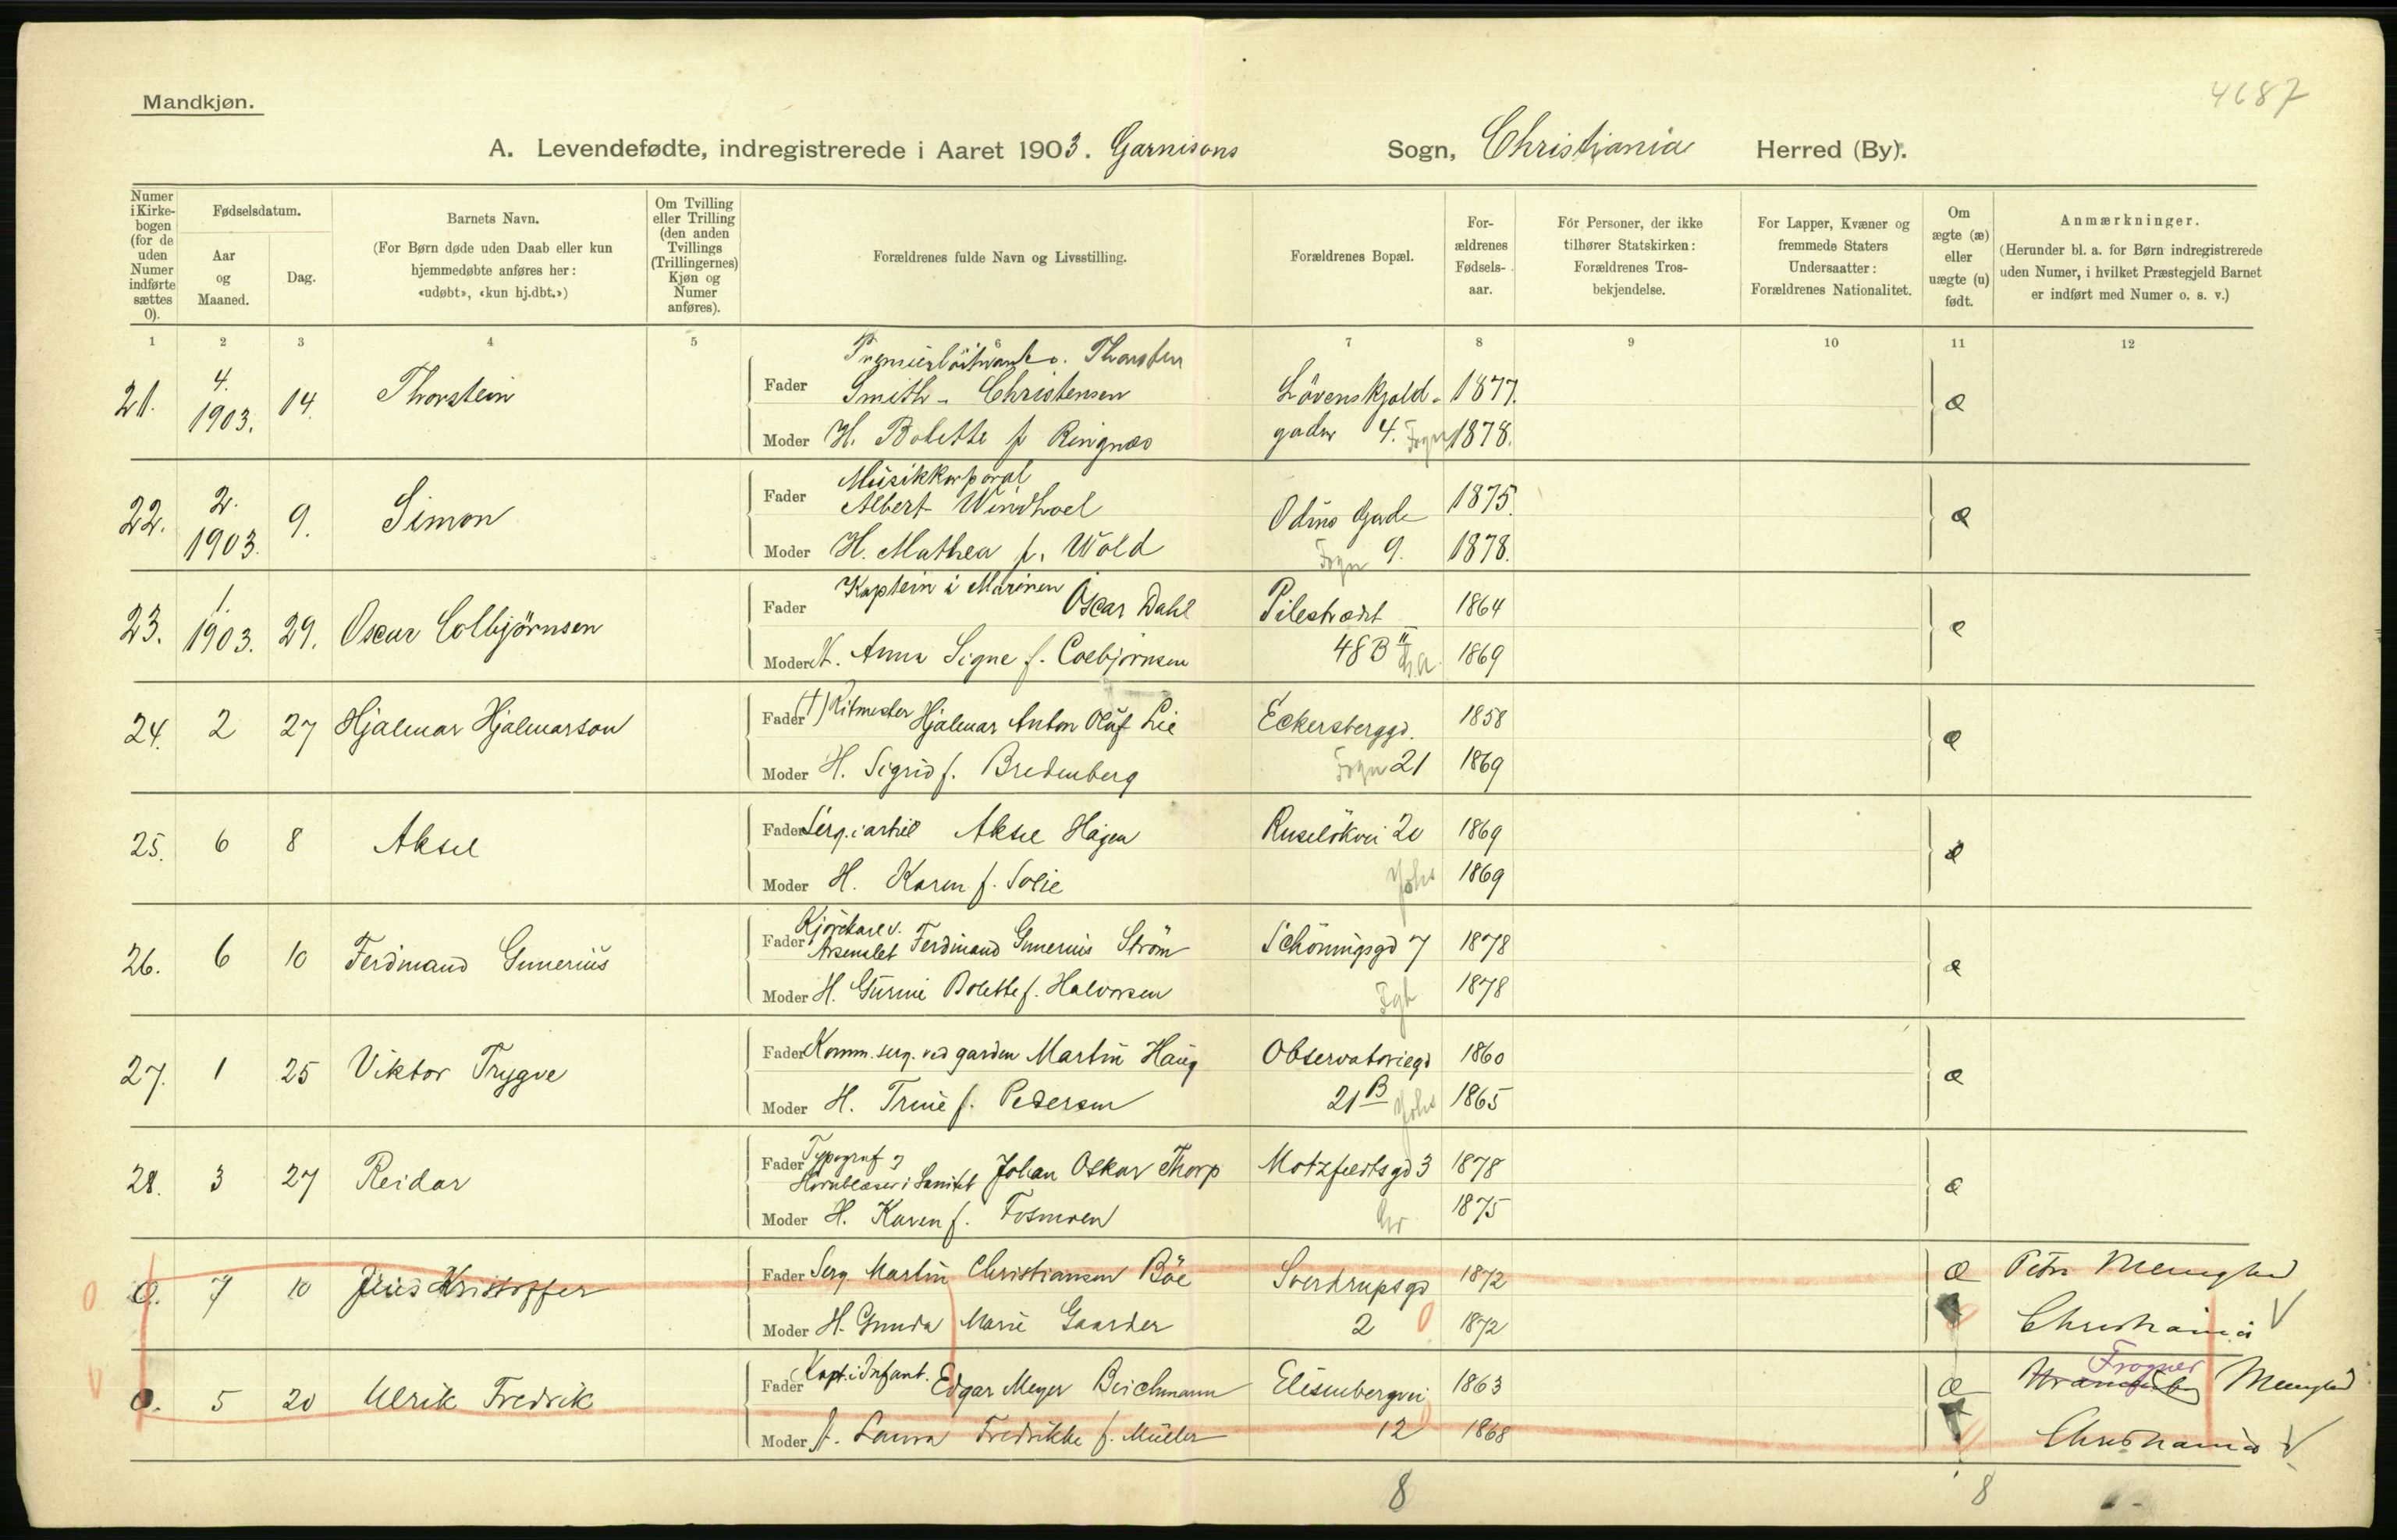 4687
Mandkjøn.
A. Levendefødte, indregistrerede i Aaret 1903. Garnisons Sogn, Christiania Herred (By).
Numer i Kirke-bogen (for de uden Numer indførte sættes 0).
Fødselsdatum.
Aar og Maaned.
Dag.
Barnets Navn.
(For Børn døde uden Daab eller kun hjemmedøbte anføres her: «udøbt», «kun hj.dbt.»)
Om Tvilling eller Trilling (den anden Tvillings (Trillingernes) Kjøn og Numer anføres).
Forældrenes fulde Navn og Livsstilling.
Forældrenes Bopæl.
For-ældrenes Fødsels-aar.
For Personer, der ikke tilhører Statskirken: Forældrenes Tros-bekjendelse.
For Lapper, Kvæner og fremmede Staters Undersaatter: Forældrenes Nationalitet.
Om ægte (æ) eller uægte (u) født.
Anmærkninger.
(Herunder bl. a. for Børn indregistrerede uden Numer, i hvilket Præstegjeld Barnet er indført med Numer o. s. v.)
1 2 3 4 5 6 7 8 9 10 11 12
21. 4. 1903. 14. Thorstein
Fader Smith-Christensen Løvenskjold- 1877. æ
Moder H. Bolette f Ringnæs gaden 4. Frogn 1878.
22. 2. 1903. 9. Simon
Fader Musikkorporal Albert Windhoel Odins Gade 1875. æ
Moder H. Mathea f. Wold Frogn 9. 1878.
23. 1. 1903. 29. Oscar Colbjørnsen
Fader Kaptein i Marinen Oscar Dahl Pilestrædet 1864 æ
Moder H. Anna Signe f. Colbjørnsen 48 B II 1869
24. 2 27 Hjalmar Hjalmarson
Fader (†) Ritmester Hjalmar Anton Oluf Lie Eckersberggd. 1858 æ
Moder H. Sigrid f. Bredenberg Frogn 21 1869
25. 6 8 Aksel
Fader Serg. i artil Aksel Hagen Ruseløkvei 20 1869 æ
Moder H. Karen f. Solie Johs 1869
26. 6 10 Ferdinand Gunerius
Fader Arsenalet Ferdinand Gunerius Strøm Schöningsgd 7 1878 æ
Moder H. Gurine Bolette f. Halvorsen Fgb 1878
27. 1 25 Viktor Trygve
Fader Komm. serg. ved garden Martin Haug Observatoriegd 1860 æ
Moder H. Trine f. Pedersen 21 B Johs 1865
28. 3 27 Reidar
Fader Typograf & Hornblæser i Sanitet Johan Oskar Thorp Motzfeldtsgd 3 1878 æ
Moder H. Karen f. Fosmoen Gr 1875
0. 7 10 Kristoffer
Fader Serg Martin Christiansen Bøe Sverdrupsgd 1872 æ Petri Menighed
Moder H. Gunda Marie Gaarder 2 0 1872 Christiania V
0. 5 20 Ulrik Fredrik
Fader Kapt. i Infant. Edgar Meyer Beichmann Elisenbergvei 1863 æ Uranienborg Frogner Menighed
Moder H. Laura Fredrikke f. Müller 12 1868 Christiania V
8 8